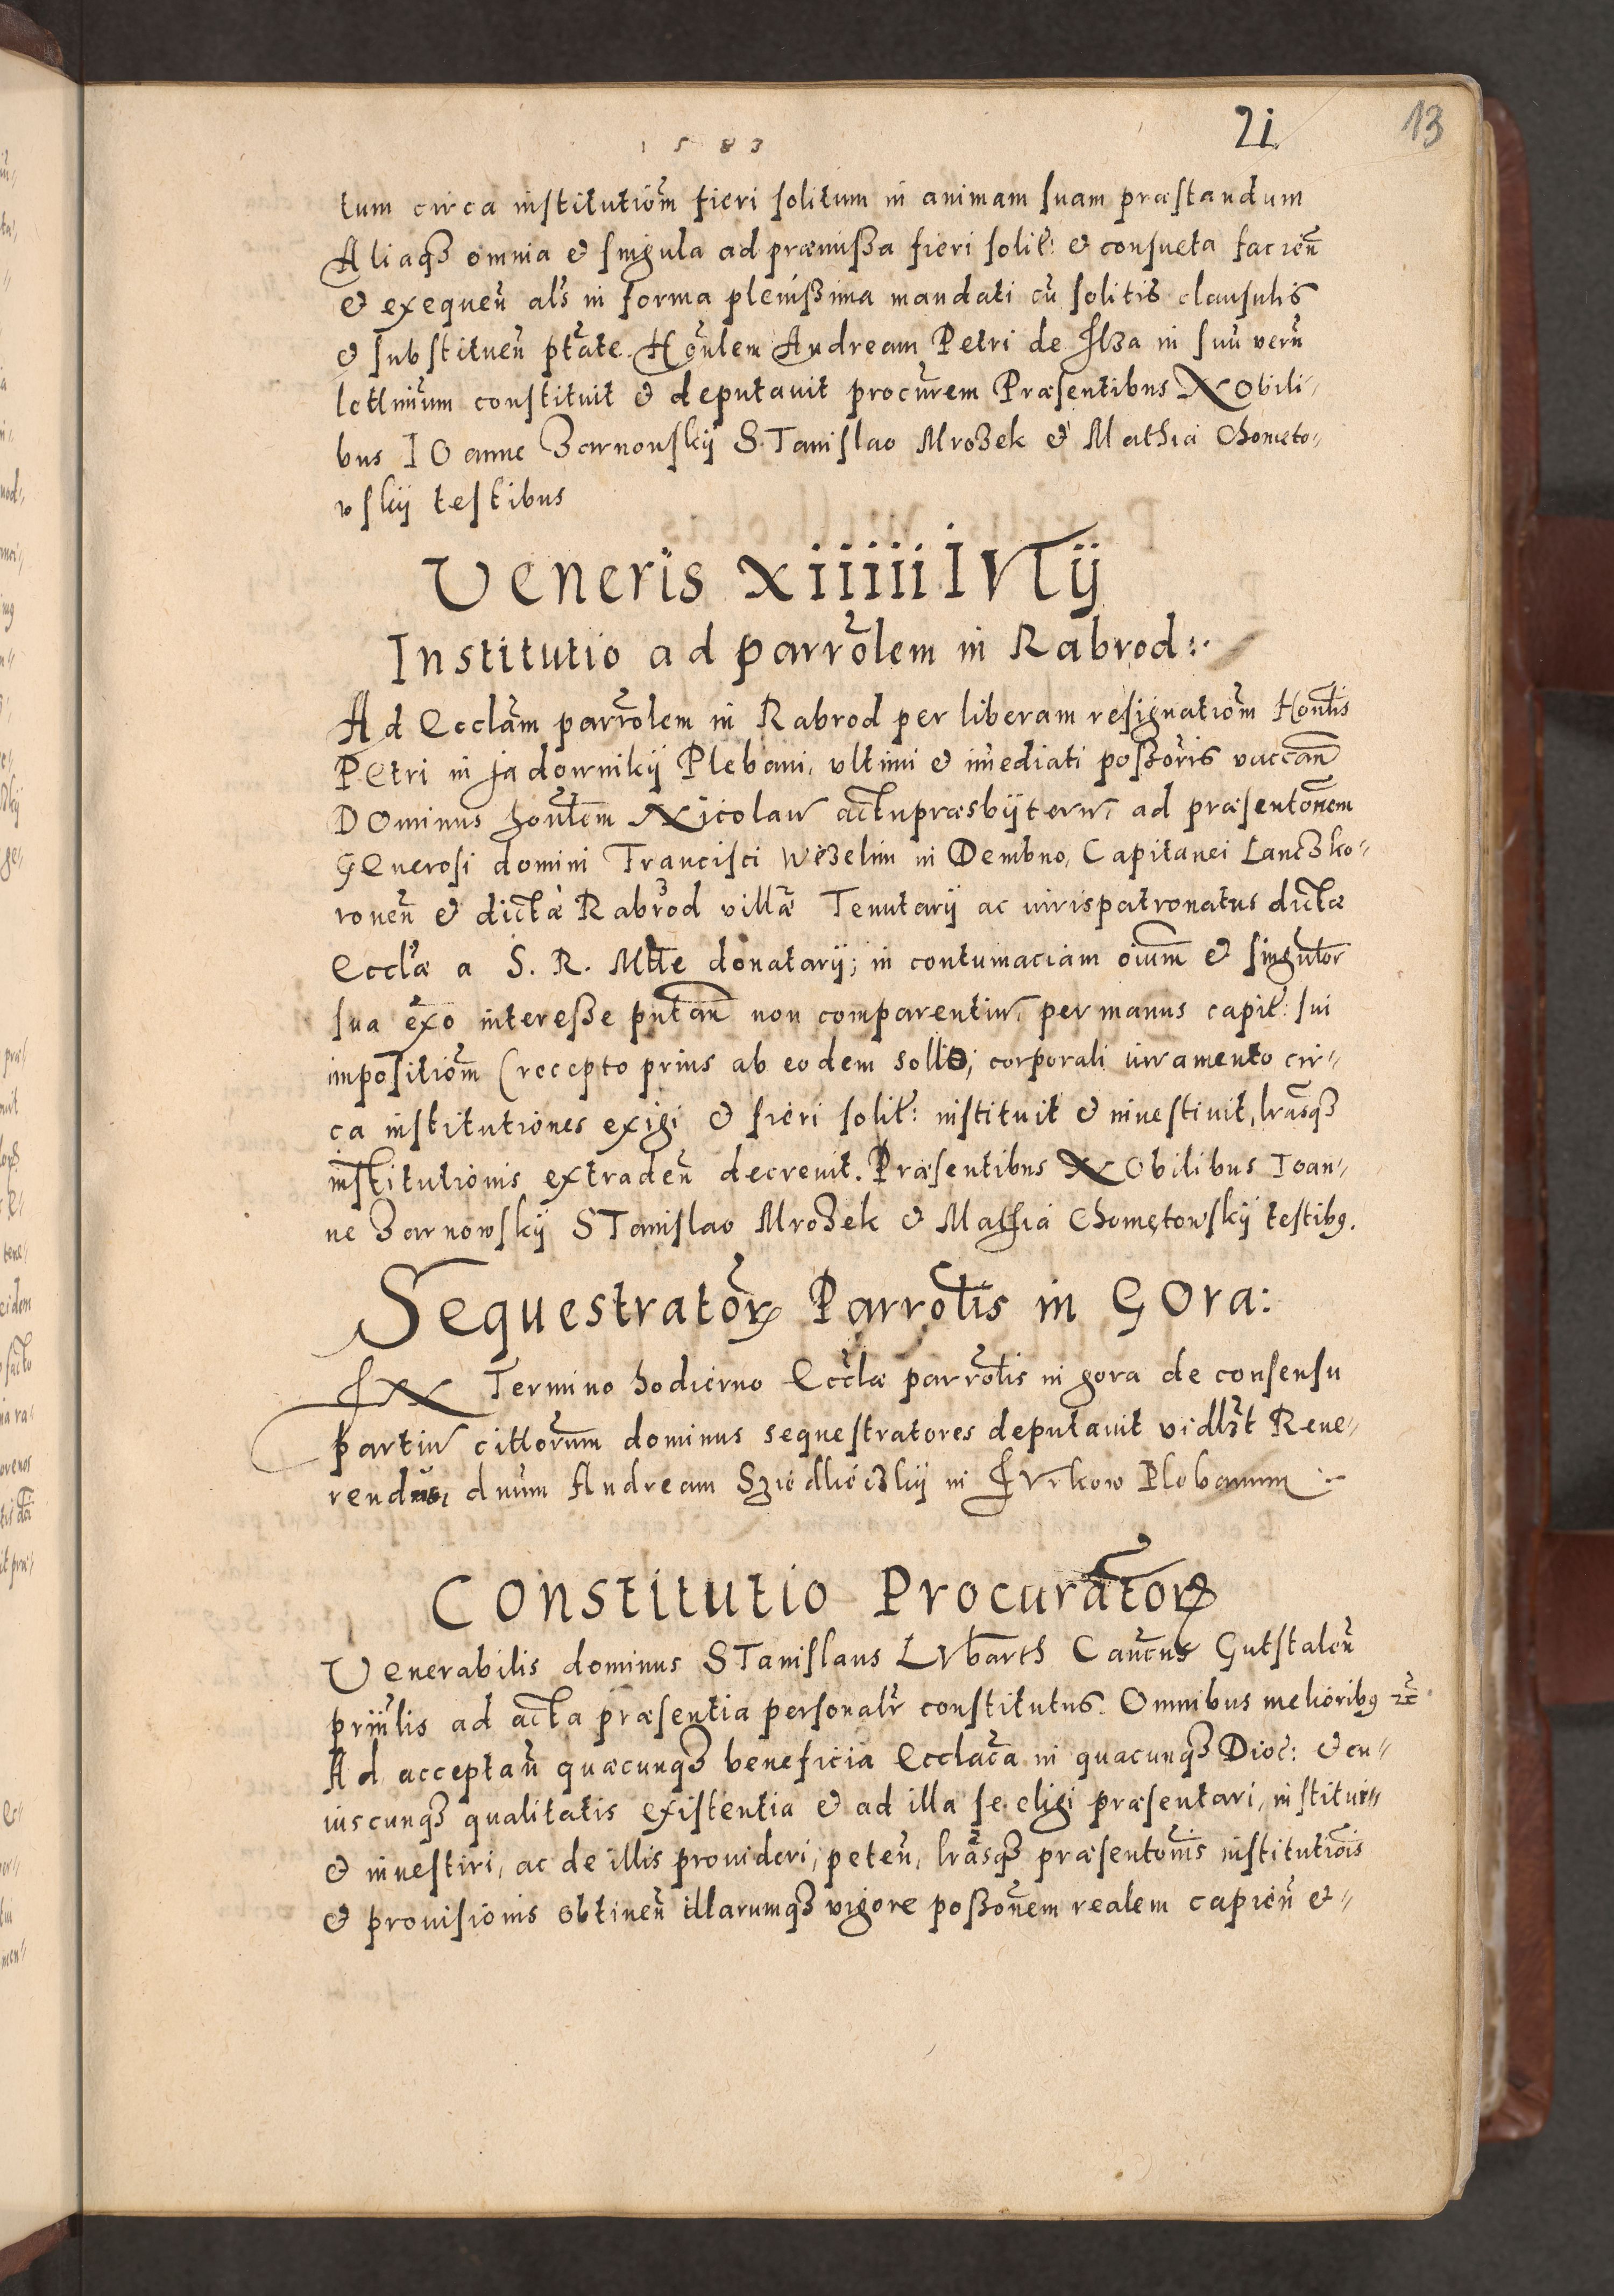 1583
21
13
tum circa institutiõm fieri solitum in animam suam præstandum
Aliaqȝ omnia & singula ad præmissa fieri solit: & consueta facien̄
& exequen̄ als in forma plenissima mandati cū solitis clausulis
& substituen̄ ptãte Honlem Andream Petri de Ilza in suū verū
lcttimum constituit & deputavit procūrem Præsentibus Nobili⸗
bus IOanne Zarnowskij STanislao Mrozek & Mathia Chometo⸗
wskij testibus
Veneris xiiiiii IVLij
Institutio ad parrõlem in Rabrod:
Ad Ecclãm parrõlem in Rabrod per liberam resignatiõm Honlis
PEtri in Jadownikij Plebani, ultimi & imediati possoris vaccan̄
DOminus honlem Nicolaum actupræsbijterum, ad præsentõnem
GEnerosi domini Francisci Wezelin in Dembno, Capitanei Lanczko⸗
ronen̄ & dictæ Rabrod villæ Tenutarij ac iurispatronatus dictæ
Ecclæ a S. R. Mtte donatarij; in contumaciam oium & singulor
sua exo interesse putan̄ non comparentium, per manus capit: sui
impositiõm (recepto prius ab eodem sollo; corporali iuramento cir⸗
ca institutiones exigi & fieri solit: instituit & investivit, lrasqȝ
institutionis extraden̄ decrevit. Præsentibus NObilibus Ioan⸗
ne Zarnowskij STanislao Mrozek & Mathia Chometowskij testibꝰ.
Sequestratorꝝ Parrolis in GOra:
IN Termino hodierno Ecclæ parrolis in gora de consensu
partium cittorum dominus sequestratores deputavit vidlzt Reve⸗
rendus, dnum Andream Sziedlieczkij in IVrkow Plebanum
COnstitutio Procuratorꝝ
VEnerabilis dominus STanislaus LVbarth Cancus Gutstalen̄
prinlis ad acta præsentia personalr constitutus. Omnibus melioribꝰ &c̄
Ad acceptan̄ quæcunqȝ beneficia Ecclãca in quacunqȝ Dioc: & cu⸗
iuscunqȝ qualitatis existentia & ad illa se eligi præsentari, institui⸗
& investiri, ac de illis provideri, peten̄, lrãsqȝ præsentõnis institutiõis
& provisionis obtinen̄ illarumqȝ vigore possõnem realem capien̄ &⸗